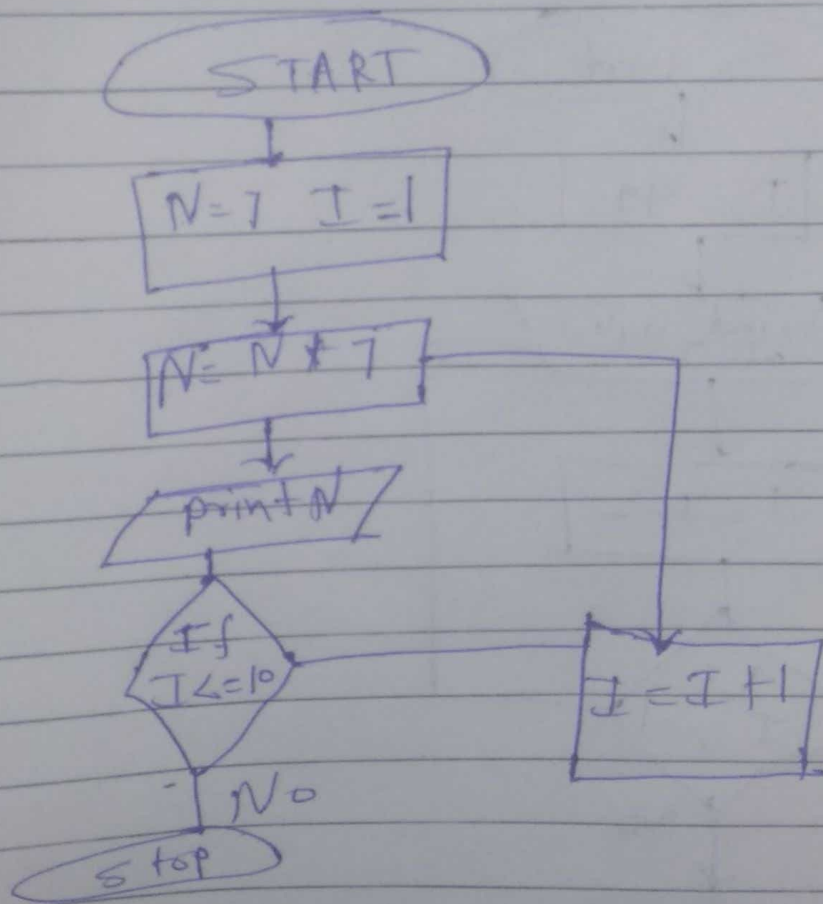 START
N=7 I=1
N= N * 7
print N
If
I<=10
I = I +1
No
Stop